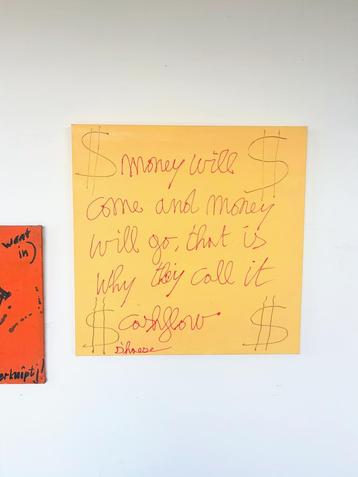 want
in)
erknipt j!
$ money will $
come and money
will go, that is
why they call it
$ cashflow $
D'haese